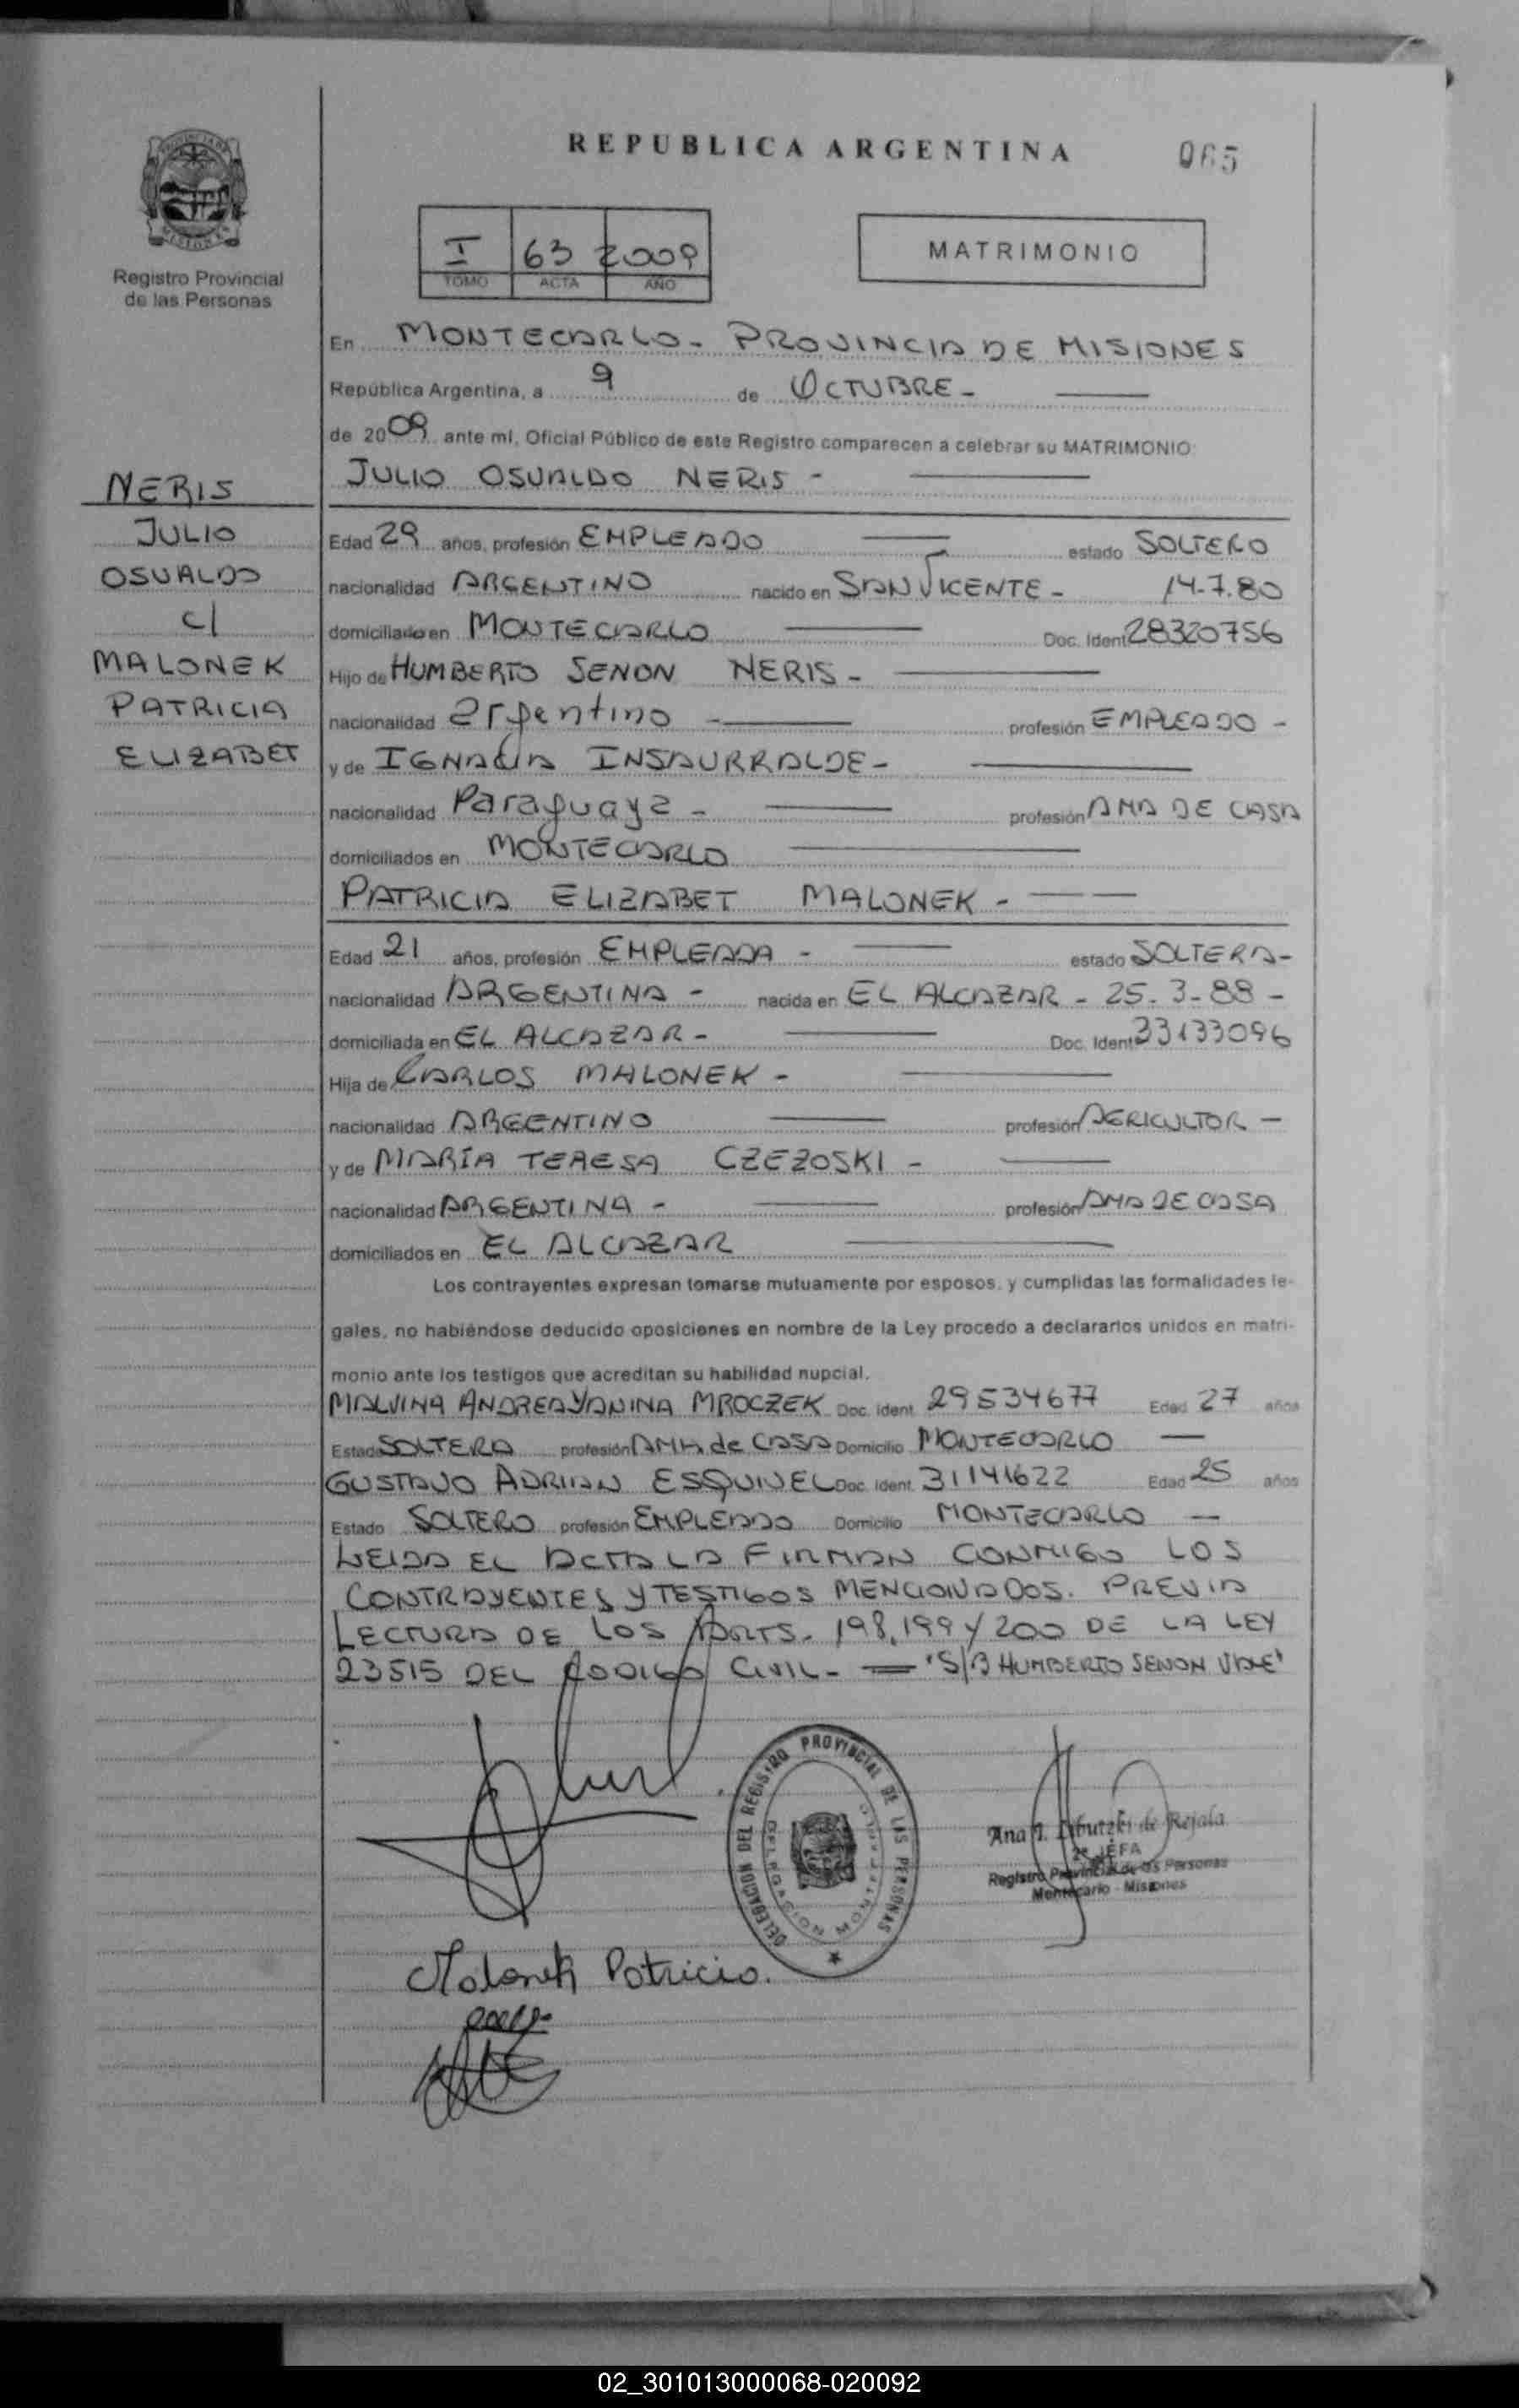 REPUBLICA ARGENTINA
065
PROVINCIA DE
MISIONES
Registro Provincial
de las Personas
I 63 2009
TOMO ACTA AÑO
MATRIMONIO
En MONTECARLO - PROVINCIA DE MISIONES
República Argentina, a 9 de OCTUBRE -
de 2009 ante mí, Oficial Público de este Registro comparecen a celebrar su MATRIMONIO:
JULIO OSVALDO NERIS -
NERIS
JULIO
OSVALDO
c/
MALONEK
PATRICIA
ELIZABET
Edad 29 años, profesión EMPLEADO estado SOLTERO
nacionalidad ARGENTINO nacido en SAN VICENTE - 14-7.80
domiciliado en MONTECARLO Doc. Ident 28320756
Hijo de HUMBERTO SENON NERIS -
nacionalidad argentino - profesión EMPLEADO -
y de IGNACIA INSAURRALDE -
nacionalidad Paraguaya - profesión AMA DE CASA
domiciliados en MONTECARLO
PATRICIA ELIZABET MALONEK -
Edad 21 años, profesión EMPLEADA - estado SOLTERA -
nacionalidad ARGENTINA - nacida en EL ALCAZAR - 25-3-88 -
domiciliada en EL ALCAZAR - Doc. Ident 33133096
Hija de CARLOS MALONEK -
nacionalidad ARGENTINO profesión AGRICULTOR -
y de MARÍA TERESA CZEZOSKI -
nacionalidad ARGENTINA - profesión AMA DE CASA
domiciliados en EL ALCAZAR
Los contrayentes expresan tomarse mutuamente por esposos, y cumplidas las formalidades le-
gales, no habiéndose deducido oposiciones en nombre de la Ley procedo a declararlos unidos en matri-
monio ante los testigos que acreditan su habilidad nupcial.
MALVINA ANDREA YANINA MROCZEK Doc. Ident. 29534677 Edad 27 años
Estado SOLTERA profesión AMA de CASA Domicilio MONTECARLO
GUSTAVO ADRIAN ESQUIVEL Doc. Ident. 31141622 Edad 25 años
Estado SOLTERO profesión EMPLEADO Domicilio MONTECARLO
LEIDA EL ACTA LA FIRMAN CONMIGO LOS
CONTRAYENTES Y TESTIGOS MENCIONADOS. PREVIA
LECTURA DE LOS ARTS. 198, 199 Y 200 DE LA LEY
23515 DEL CODIGO CIVIL - "S/B HUMBERTO SENON VALE"
DELEGACION DEL REGISTRO PROVINCIAL DE LAS PERSONAS
Ana de Rejala
2º JEFA
Registro Provincial de las Personas
Montecarlo - Misiones
Malonek Patricia.
02_301013000068-020092